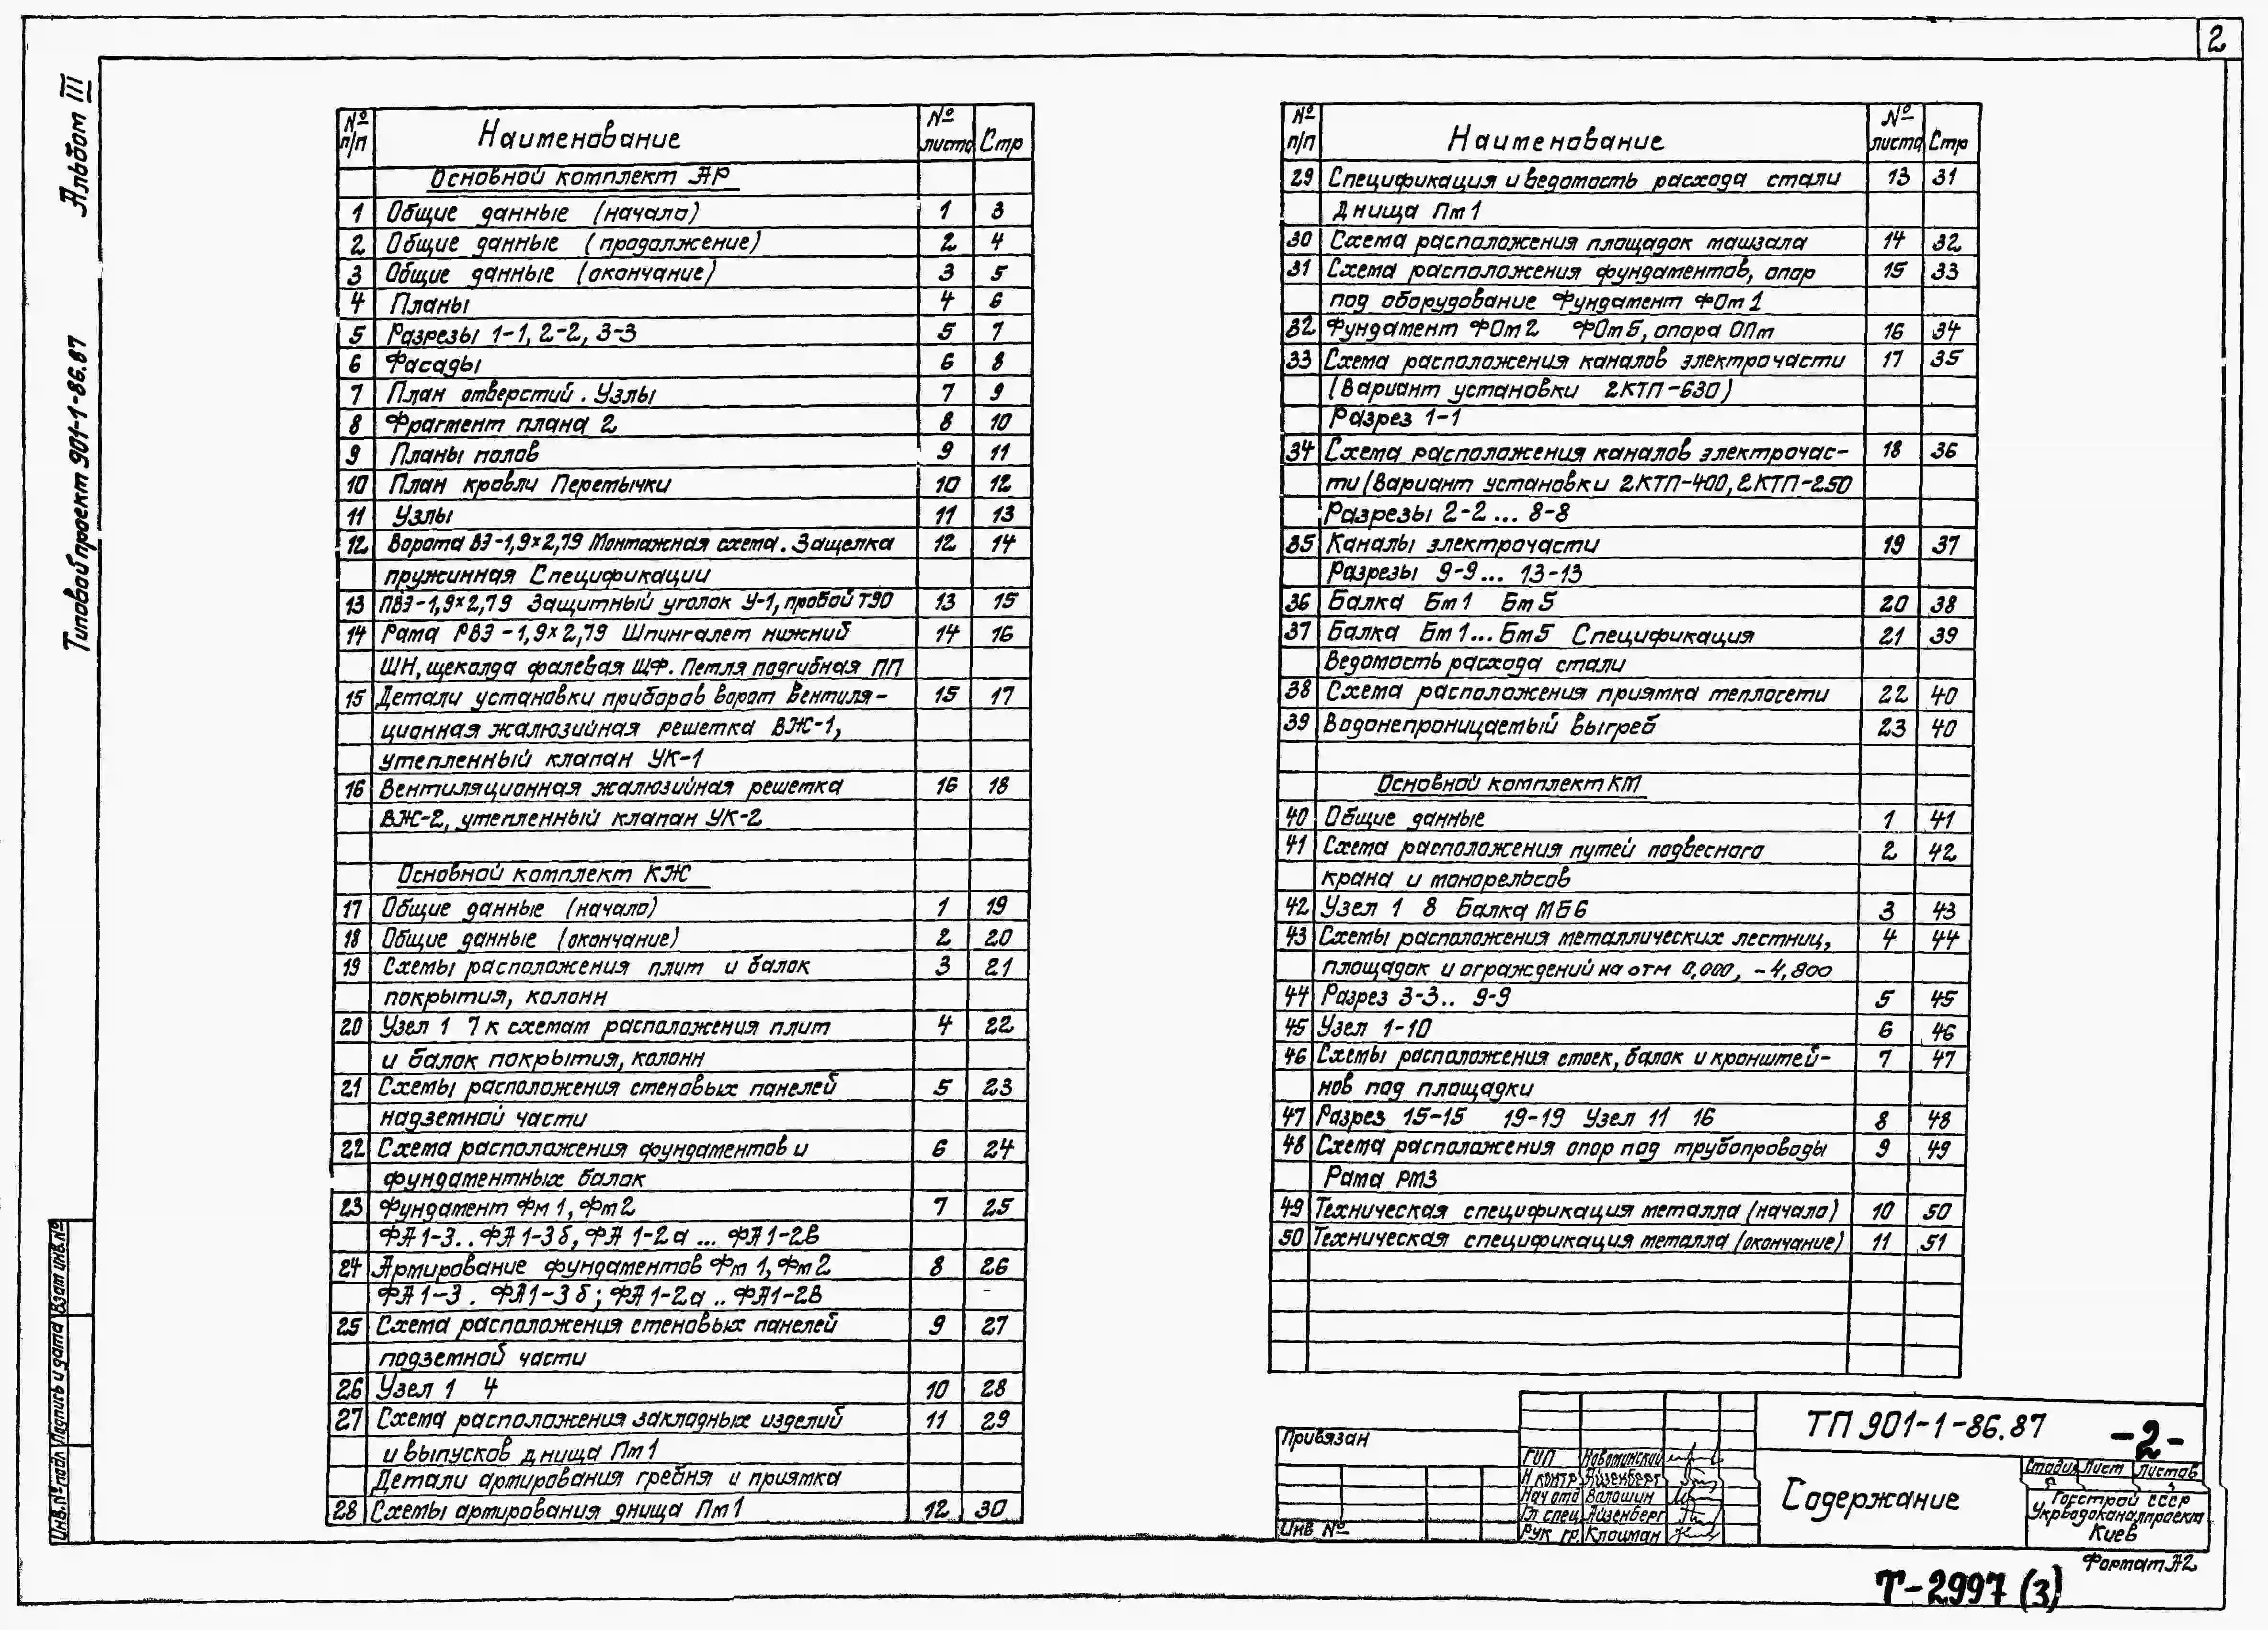 2
Альбом III
Типовой проект 901-1-86.87
№ п/п Наименование № листа Стр
Основной комплект АР
1 Общие данные (начало) 1 3
2 Общие данные (продолжение) 2 4
3 Общие данные (окончание) 3 5
4 Планы 4 6
5 Разрезы 1-1, 2-2, 3-3 5 7
6 Фасады 6 8
7 План отверстий. Узлы 7 9
8 Фрагмент плана 2 8 10
9 Планы полов 9 11
10 План кровли Перемычки 10 12
11 Узлы 11 13
12 Ворота ВЭ-1,9×2,79 Монтажная схема. Защелка 12 14
пружинная Спецификации
13 ПВЭ-1,9×2,79 Защитный уголок У-1, пробой Т90 13 15
14 Рама РВЭ-1,9×2,79 Шпингалет нижний 14 16
ШН, щеколда фалевая ЩФ. Петля подгибная ПП
15 Детали установки приборов ворот Вентиля- 15 17
ционная жалюзийная решетка ВЖ-1,
утепленный клапан УК-1
16 Вентиляционная жалюзийная решетка 16 18
ВЖ-2, утепленный клапан УК-2
Основной комплект КЖ
17 Общие данные (начало) 1 19
18 Общие данные (окончание) 2 20
19 Схемы расположения плит и балок 3 21
покрытия, колонн
20 Узел 1 7 к схемам расположения плит 4 22
и балок покрытия, колонн
21 Схемы расположения стеновых панелей 5 23
надземной части
22 Схема расположения фундаментов и 6 24
фундаментных балок
23 Фундамент Фм 1, Фм 2 7 25
ФА 1-3.. ФА 1-3б, ФА 1-2а ... ФА 1-2в
24 Армирование фундаментов Фм 1, Фм 2 8 26
ФА 1-3 . ФА 1-3б; ФА 1-2а .. ФА 1-2в
25 Схема расположения стеновых панелей 9 27
подземной части
26 Узел 1 4 10 28
27 Схема расположения закладных изделий 11 29
и выпусков днища Пм 1
Детали армирования гребня и приямка
28 Схемы армирования днища Пм 1 12 30
№ п/п Наименование № листа Стр
29 Спецификация и ведомость расхода стали 13 31
Днища Пм 1
30 Схема расположения площадок машзала 14 32
31 Схема расположения фундаментов, опор 15 33
под оборудование Фундамент ФОм 1
32 Фундамент ФОм 2 ФОм 5, опора ОПм 16 34
33 Схема расположения каналов электрочасти 17 35
(Вариант установки 2КТП-630)
Разрез 1-1
34 Схема расположения каналов электрочас- 18 36
ти (Вариант установки 2КТП-400, 2КТП-250
Разрезы 2-2 ... 8-8
35 Каналы электрочасти 19 37
Разрезы 9-9 ... 13-13
36 Балка Бм 1 Бм 5 20 38
37 Балка Бм 1 ... Бм 5 Спецификация 21 39
Ведомость расхода стали
38 Схема расположения приямка теплосети 22 40
39 Водонепроницаемый выгреб 23 40
Основной комплект КМ
40 Общие данные 1 41
41 Схема расположения путей подвесного 2 42
крана и монорельсов
42 Узел 1 8 Балка МБ6 3 43
43 Схемы расположения металлических лестниц, 4 44
площадок и ограждений на отм 0,000, -4,800
44 Разрез 3-3.. 9-9 5 45
45 Узел 1-10 6 46
46 Схемы расположения стоек, балок и кронштей- 7 47
нов под площадки
47 Разрез 15-15 19-19 Узел 11 16 8 48
48 Схема расположения опор под трубопроводы 9 49
Рама РМ3
49 Техническая спецификация металла (начало) 10 50
50 Техническая спецификация металла (окончание) 11 51
Взам инв.№
Подпись и дата
Инв.№ подл
Привязан
Инв №
ГИП Новоминский
Н контр Айзенберг
Нач отд Волошин
Гл спец Айзенберг
Рук гр. Клоцман
ТП 901-1-86.87
-2-
Содержание
Стадия Лист Листов
Госстрой СССР
Укрводоканалпроект
Киев
Формат А2
Т-2997 (3)